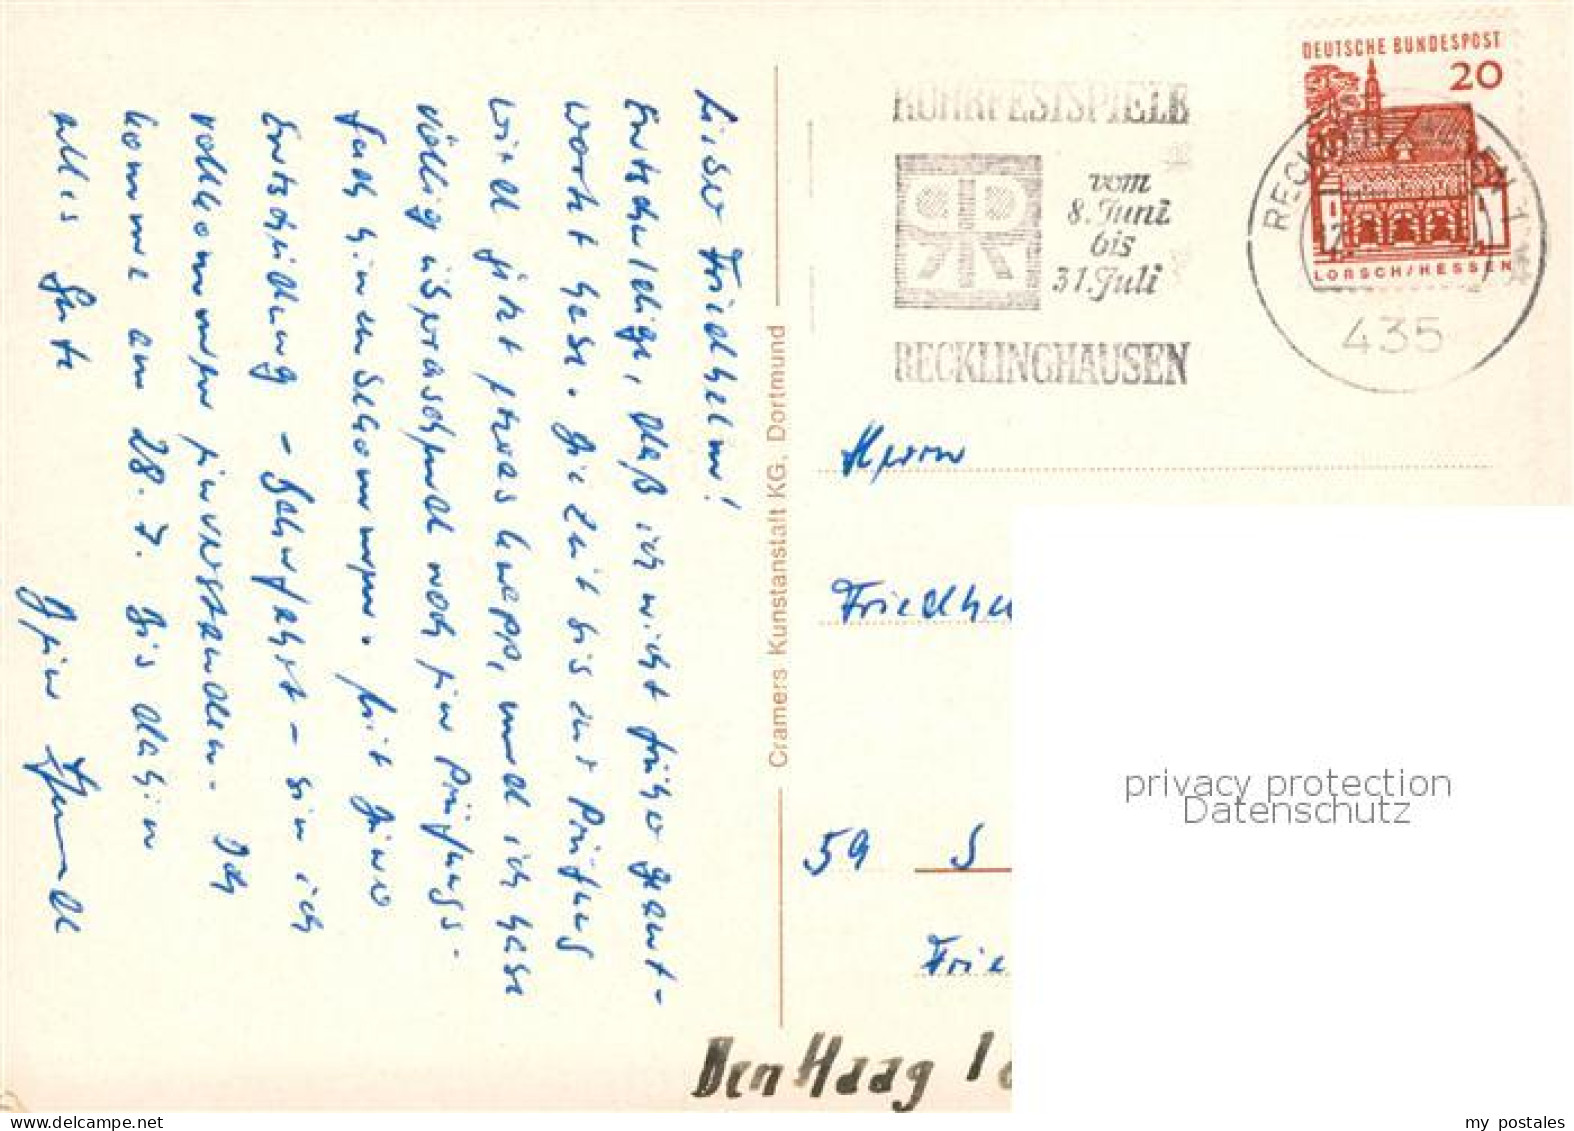 Lieber Friedhelm!
Entschuldige, daß ich nicht früher geant-
wortet habe. Die Zeit bis zur Prüfung
wird jetzt etwas knapp, und ich habe
völlig überraschend noch ein Prüfungs-
fach hinzubekommen. Mit Deiner
Entscheidung - Schiffahrt - bin ich
vollkommen einverstanden. Ich
komme am 28. 7. Bis dahin
alles Gute
Dein
Cramers Kunstanstalt KG, Dortmund
RUHRFESTSPIELE
vom
8. Juni
bis
31. Juli
RECKLINGHAUSEN
DEUTSCHE BUNDESPOST
20
LORSCH/HESSEN
RECKLINGHAUSEN 1
435
Herrn
Friedhe
59 S
Frie
Den Haag 1
privacy protection
Datenschutz
my postales